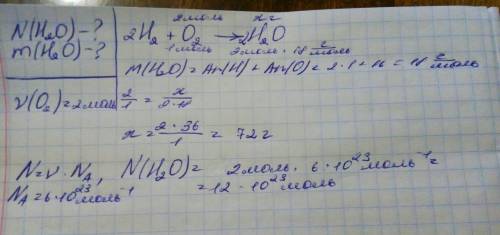 N(H₂O)-?
m(H₂O)-?
ν(O₂)=2моль
2моль x г
2H₂ + O₂ → 2H₂O
1моль 2моль · 18 г/моль
M(H₂O)=Ar(H)+Ar(O)=2·1+16=18 г/моль
2/1 = x/2·18
x = 2·36/1 = 72г
N=ν·N_A, N(H₂O)= 2моль · 6·10²³моль⁻¹=
N_A=6·10²³моль⁻¹ =12·10²³моль